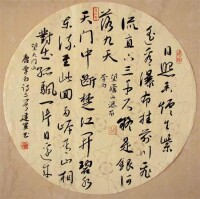 日照香炉生紫
烟遥看瀑布挂前川飞
流直下三千尺疑是银河
落九天
望庐山瀑布
李白
天门中断楚江开碧水
东流至此回两岸青山相
对出孤帆一片日边来
望天门山
唐李白诗二首